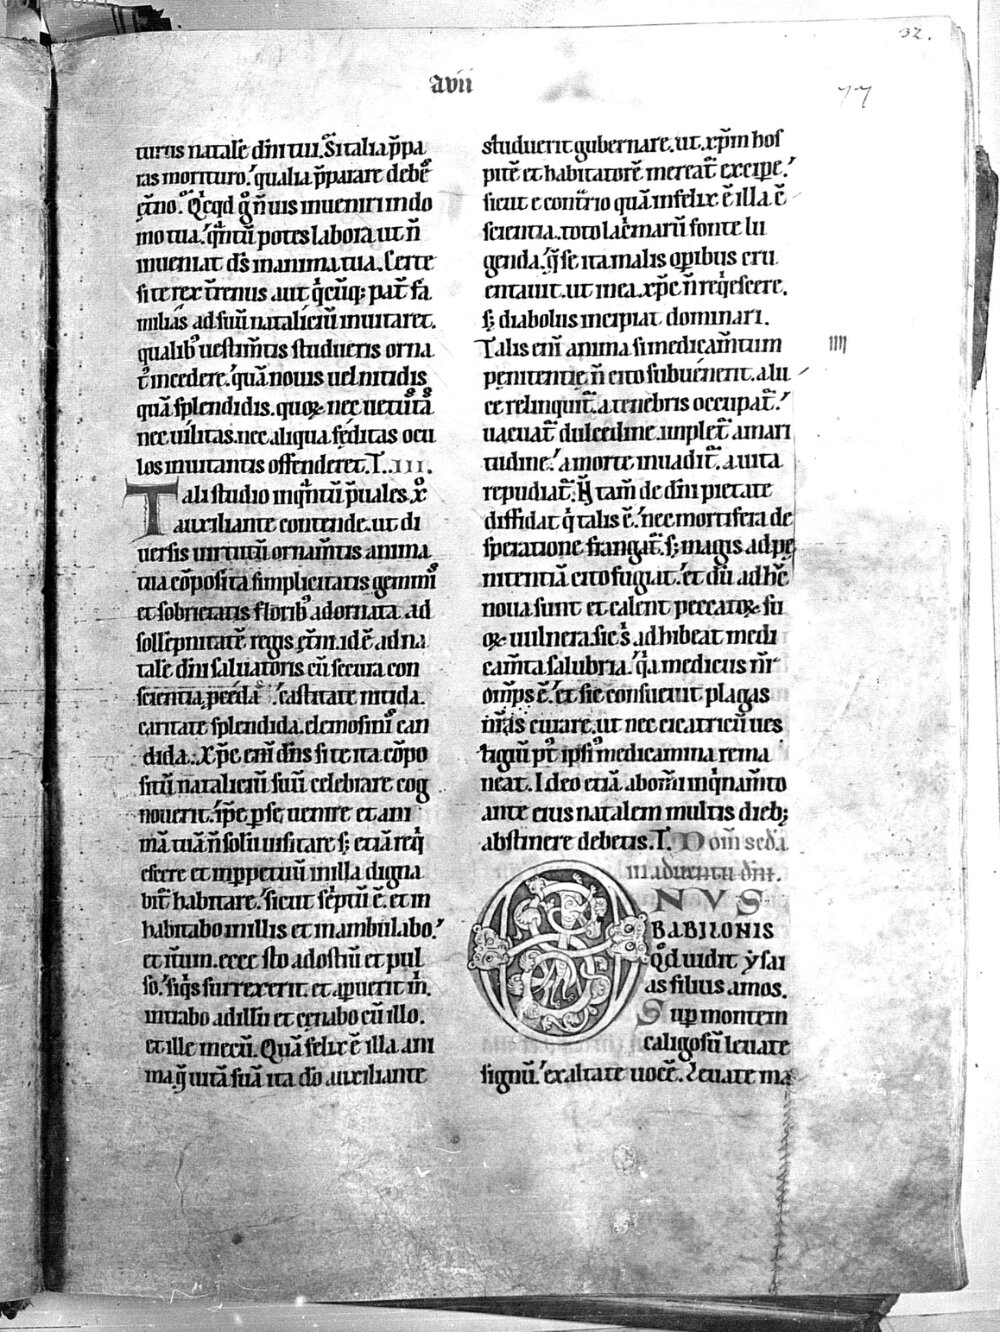 32.
avii
77
turus natale dñi tui. Si talia p̄pa
ras morituro. qualia p̄parare debes̄
ęt̄no. Qicqd g̊ ñ uis inueniri in do
mo tua. q̄ntū potes labora ut ñ
inueniat d̄s in anima tua. Certe
si te rex t̄renus aut q̇cūq; pat̄ fa
milias ad suū nataliciū inuitaret.
qualib; uestim̄tis studueris orna
t̊ incedere. quā nouis uel nitidis
quā splendidis. quoꝝ nec uetustā
nec uilitas. nec aliqua fęditas ocu
los inuitantis offenderet. T. .III.
Tali studio inq̄ntū p̄uales. xo
auxiliante contende. ut di
uersis uirtutū ornam̄tis anima
tua cōposita simplicitatis gemmis
et sobrietatis florib; adornata. ad
sollēpnitatē regis ęt̄ni. id ē ad na
tale dñi saluatoris cū secura con
scientia. castitate nitida.
caritate splendida. elemosinis can
dida. Xp̄c eni dñs si te ita cōpo
sitū nataliciū suū celebrare cog
nouerit. ip̄e p̱ se uenire et ani
mā tuā ñ solū uisitare s; etiā req̇
escere et inp̱petuū in illa digna
bit̄ habitare. sicut sc̄ptū ē. et in
habitabo in illis et inambulabo.
et it̄um. ecce sto ad ostiū et pul
so. siq̇s surrexerit. et apuerit m̄.
intrabo ad illū et cenabo cū illo.
et ille mecū. Quā felix ē illa ani
ma q̄ uitā suā ita dō auxiliante
studuerit gubernare. ut. xp̄m hos
pitē et habitatorē mereat̄ excipe.
sicut e cont̄rio quā infelix ē illa 9̄
scientia. toto lac̄marū fonte lu
genda. q̄ se ita malis opibus cru
entauit. ut in ea. xp̄c ñ req̇escere.
s; diabolus incipiat dominari.
Talis eni anima si medicam̄tum IIII
penitentie ñ cito subuenerit. a lu
ce relinquit̄. a tenebris occupat̄.
uacuat̄ dulcedine. implet̄ amari
tudine. a morte inuadit̄. a uita
repudiat̄. Ñ tam̄ de dñi pietate
diffidat q̇ talis ē. nec mortifera de
speratione frangat̄. s; magis ad pę
nitentiā cito fugiat. et dū adhc̄
noua sunt et calent peccatoꝝ su
oꝝ uulnera. sic s̄. adhibeat medi
cam̄ta salubria. q̇a medicus nr̄
omp̄s ē. et sic consueuit plagas
nr̄as curare. ut nec cicatricū ues
tigiū p̄t ipsi medicamina rema
neat. Ideo etiā ab om̄i inq̇nam̄to
ante eius natalem multis dieb;
abstinere debetis. T. Dom̄ sc̄da
in aduentu dñi.
ONVS
BABILONIS
Qd̄ uidit ẏsai
as filius amos.
Sup montem
caligosū leuate
signū. exaltate uocē. Leuate ma